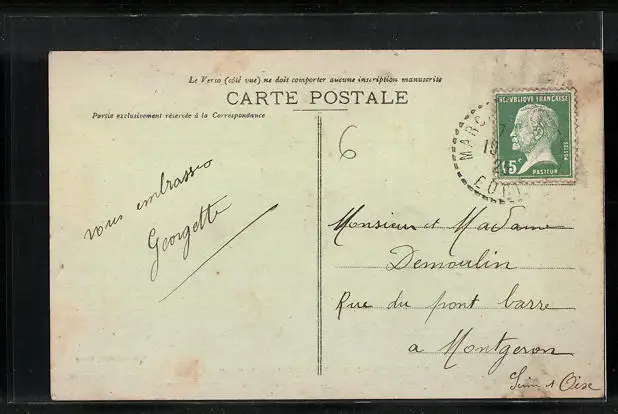 Le Verso (côté vue) ne doit comporter aucune inscription manuscrite
CARTE POSTALE
Partie exclusivement réservée à la Correspondance
6
vous embrasse
Georgette
REPUBLIQUE FRANÇAISE
15c
POSTES
PASTEUR
MARC
EURE
Monsieur et Madame
Demoulin
Rue du pont barre
a Montgeron
Seine & Oise